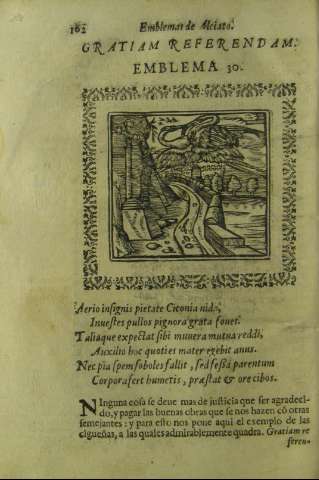 162 Emblemas de Alciato.
GRATIAM REFERENDAM.
EMBLEMA 30.
Aerio insignis pietate Ciconia nido,
Inuestes pullos pignora grata fouet.
Taliaque expectat sibi munera mutua reddi,
Auxilio hoc quoties mater egebit anus.
Nec pia spem soboles fallit, sed fessa parentum
Corpora fert humeris, præstat & ore cibos.
Ninguna cosa se deue mas de justicia que ser agradeci-
do, y pagar las buenas obras que se nos hazen cō otras
semejantes: y para esto nos pone aqui el exemplo de las
cigueñas, a las quales admirablemente quadra. Gratiam re
feren-